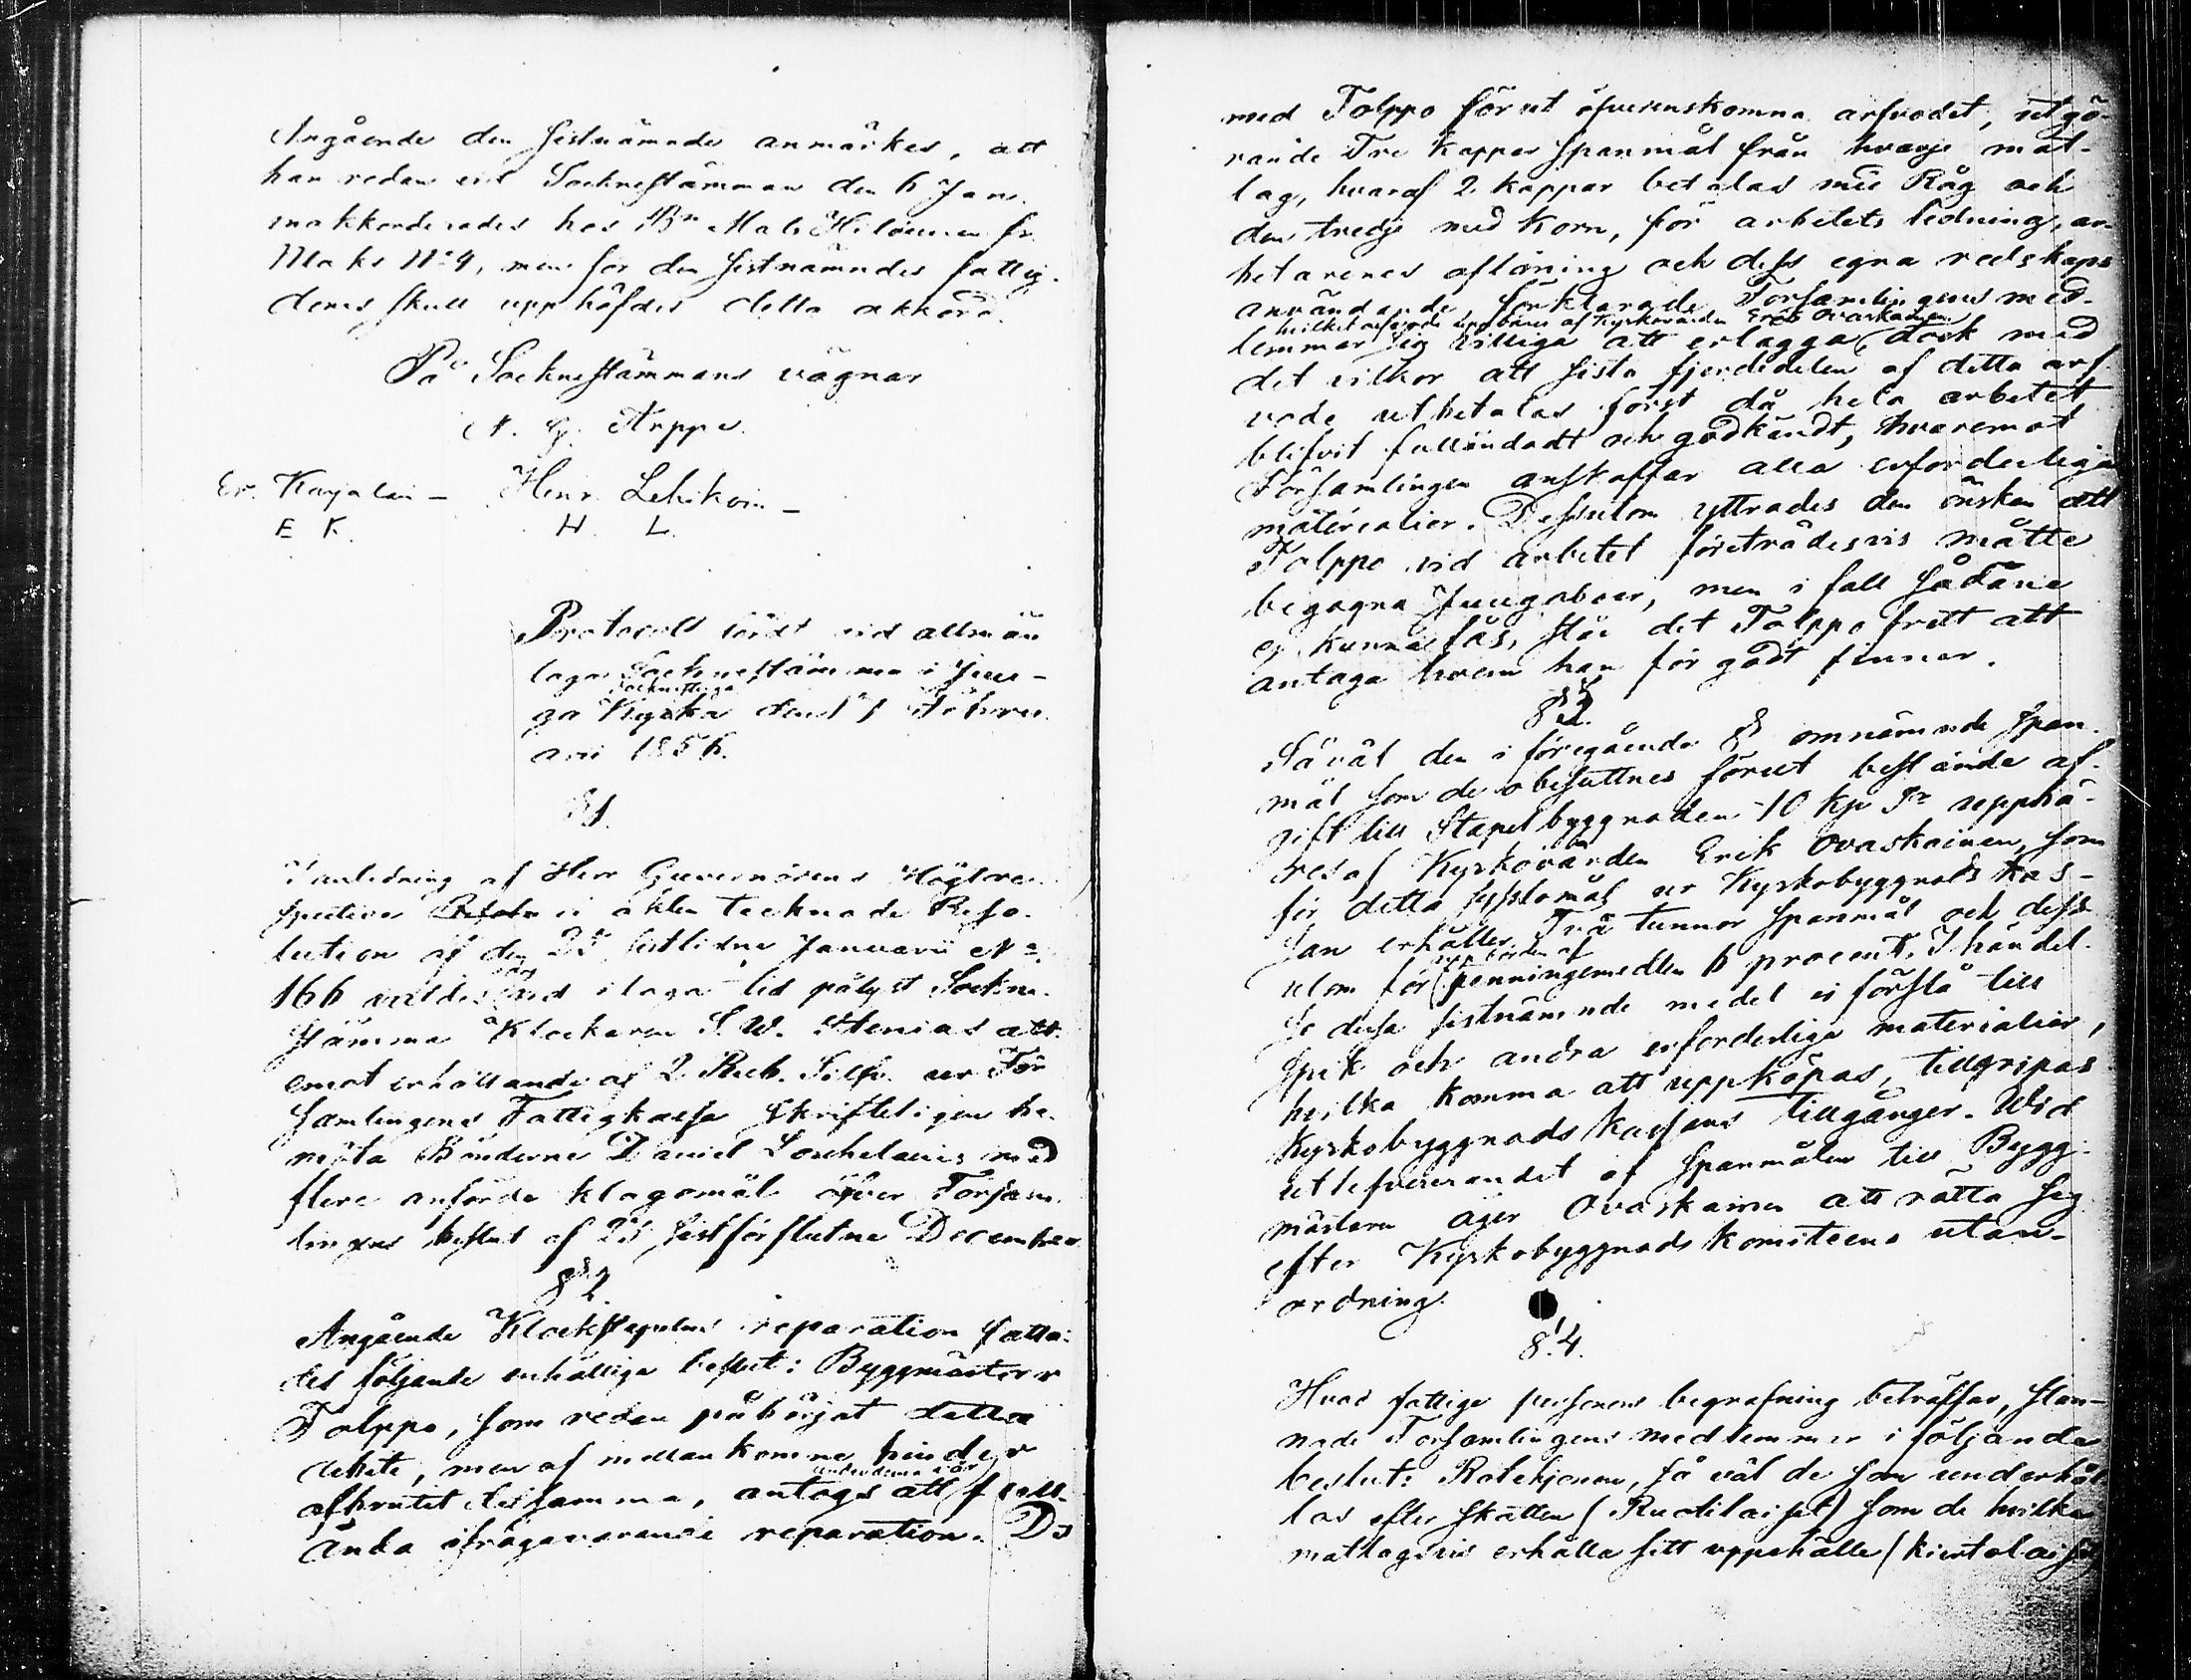 Angående den sistnämnde anmärkes, att
han redan vid Socknestämman den 6 Jan.
inakkorderades hos Bn Mats Hiloinen fr.
Maks No 4, men för den sistnämndes fattig-
doms skull upphöfdes detta akkord.
På Socknestämmans vägnar
N. G. Arppe.
Er. Karjalain – Henr. Lehikoin –
E K. H. L.
Protocoll fördt vid allmän
laga Socknestämma i Juu-
ga Kyrka den 17 Febru-
arii 1856.
§ 1.
I anledning af Herr Guvernörens Högtre-
spective å akten tecknade Reso-
lution af den 25 sistlidne Januarii No
166 valdes vid i laga tid pålyst Sockne-
stämma Klockaren S. W. Stenius att
emot erhållande af 2 Rub. Silfr. ur För-
samlingens Fattigkassa skrifteligen be-
möta Bönderne Daniel Louhelainens med
flere anförde klagomål öfver Försam-
lingens beslut af 23 sistförflutne December
§ 2.
Angående Klockstapelns reparation fatta-
des följande enhälliga beslut: Byggmästare
Tolppo, som redan påbörjat detta
arbete, men af mellankomne hinder
afbrutit detsamma, antogs att full-
ända ifrågavarande reparation. Det
med Tolppo förut öfverenskomna arfvodet, utgö-
rande Tre Kappar Spanmål från hvarje mat-
lag, hvaraf 2 kappar betalas med Råg och
den tredje med Korn, för arbetets ledning, ar-
betarenes aflöning och dess egna redskaps
användande, förklarade Församlingens med-
hvilket arfvode uppbäres af Kyrkovärden Erik Ovaskainen
lemmar sig villiga att erlägga, dock med
det vilkor att sista fjerdedelen af detta arf-
vode utbetalas först då hela arbetet
blifvit fulländadt och godkändt, hvaremot
Församlingen anskaffar alla erforderliga
materialier. Dessutom yttrades den önskan att
Tolppo vid arbetet företrädesvis måtte
begagna Juugaboer, men i fall sådane
ej kunna fås, står det Tolppo fritt att
antaga hvem han för godt finner.
§ 3.
Såväl den i föregående § omnämnde Span-
mål som de obesuttnes förut bestämde af-
gift till Stapelbyggnaden 10 kp Sr uppbä-
res af Kyrkovärden Erik Ovaskainen, som
för detta sysslomål ur Kyrkobyggnads kas-
san erhåller Två tunnor Spanmål och dess-
utom för uppbörden af penningemedlen 6 procent. I händel-
se dessa sistnämnde medel ei förslå till
spik och andra erforderliga materialier,
hvilka komma att uppköpas, tillgripas
Kyrkobyggnads kassans tillgångar. Wid
utlefvererandet af Spanmålen till Bygg-
mästaren äger Ovaskainen att rätta sig
efter Kyrkobyggnads komiteens utan-
ordning.
§ 4.
Hvad fattige personers begrafning beträffar, stan-
nade Församlingens medlemmar i följande
beslut: Rotehjonen, så väl de som underhål-
las efter skatten (Ruotilaiset) som de hvilka
matlagsvis erhålla sitt uppehälle (kiertolaiset)